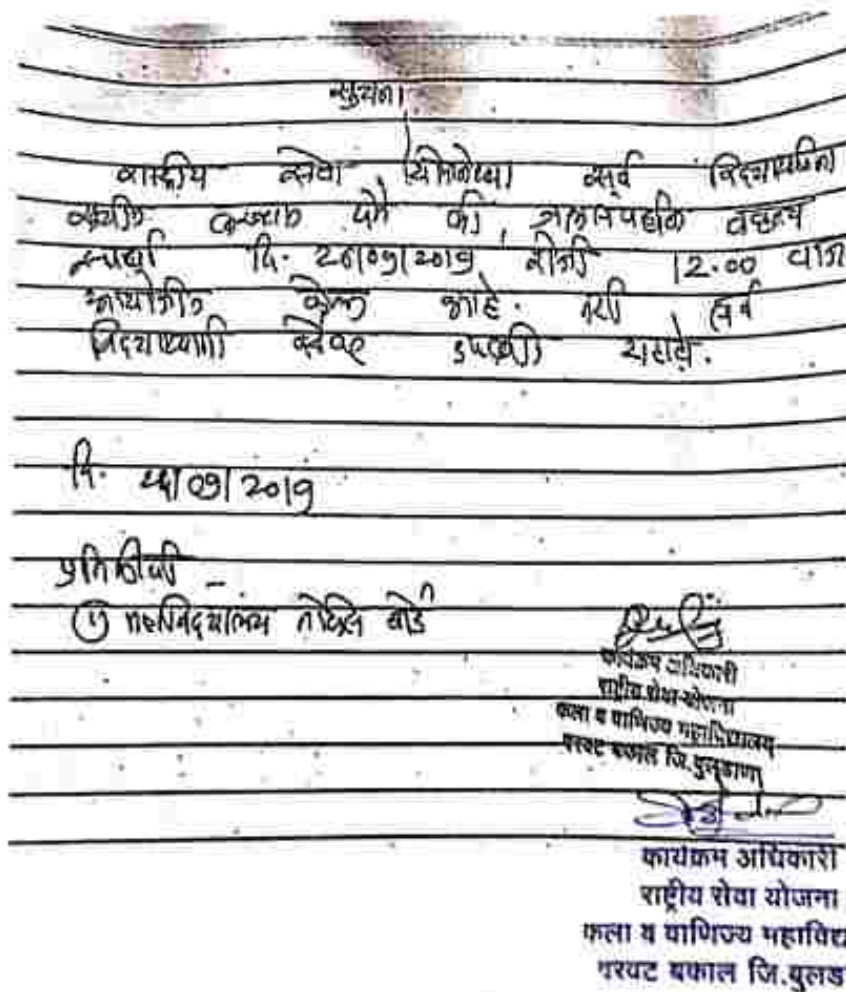 सुचना
राष्ट्रीय सेवा योजनेच्या सर्व विद्यार्थ्यांना
येते की, वक्तृत्व
स्पर्धा दि. 2019 रोजी 12.00 वाजता
आयोजीत केली आहे. तरी सर्व
विद्यार्थ्यांनी उपस्थित रहावे.
दि. /09/2019
प्रतिलीपी -
① महाविद्यालय नोटीस बोर्ड
कार्यक्रम अधिकारी
राष्ट्रीय सेवा योजना
कला व वाणिज्य महाविद्यालय
वरवट बकाल जि.बुलडाणा
कार्यक्रम अधिकारी
राष्ट्रीय सेवा योजना
कला व वाणिज्य महाविद्य
वरवट बकाल जि.बुलड